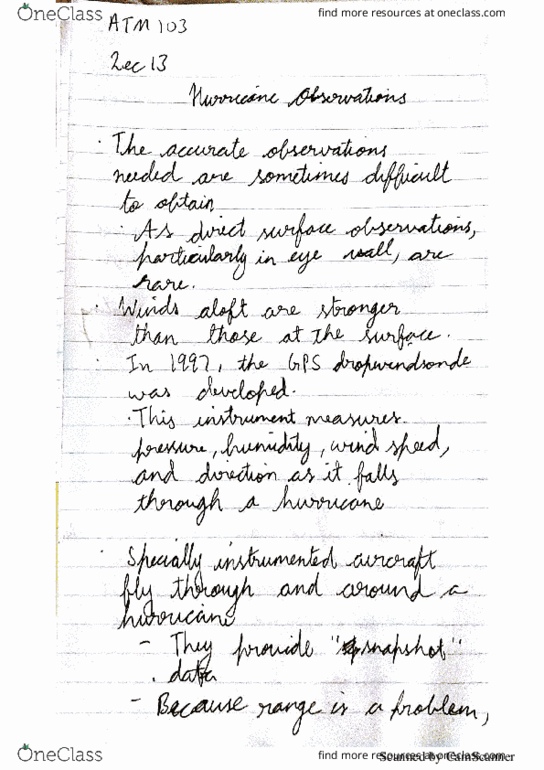 OneClass
find more resources at oneclass.com
ATM 103
Lec 13
Hurricane Observations
· The accurate observations
needed are sometimes difficult
to obtain
· As direct surface observations,
particularly in eye wall, are
rare.
· Winds aloft are stronger
than those at the surface.
· In 1997, the GPS dropwindsonde
was developed.
· This instrument measures
pressure, humidity, wind speed,
and direction as it falls
through a hurricane
· Specially instrumented aircraft
fly through and around a
hurricane
- They provide "snapshot"
. data
- Because range is a problem,
OneClass
find more resources at oneclass.com
Scanned by CamScanner